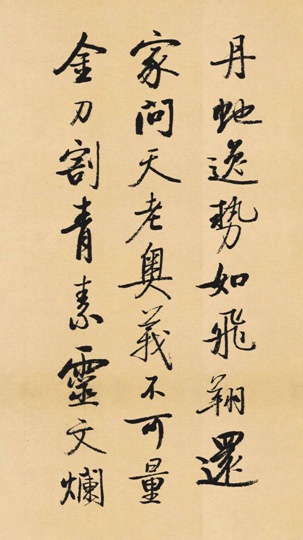 丹虵逸勢如飛翔還
家問天老奧義不可量
金刀割青素靈文爛